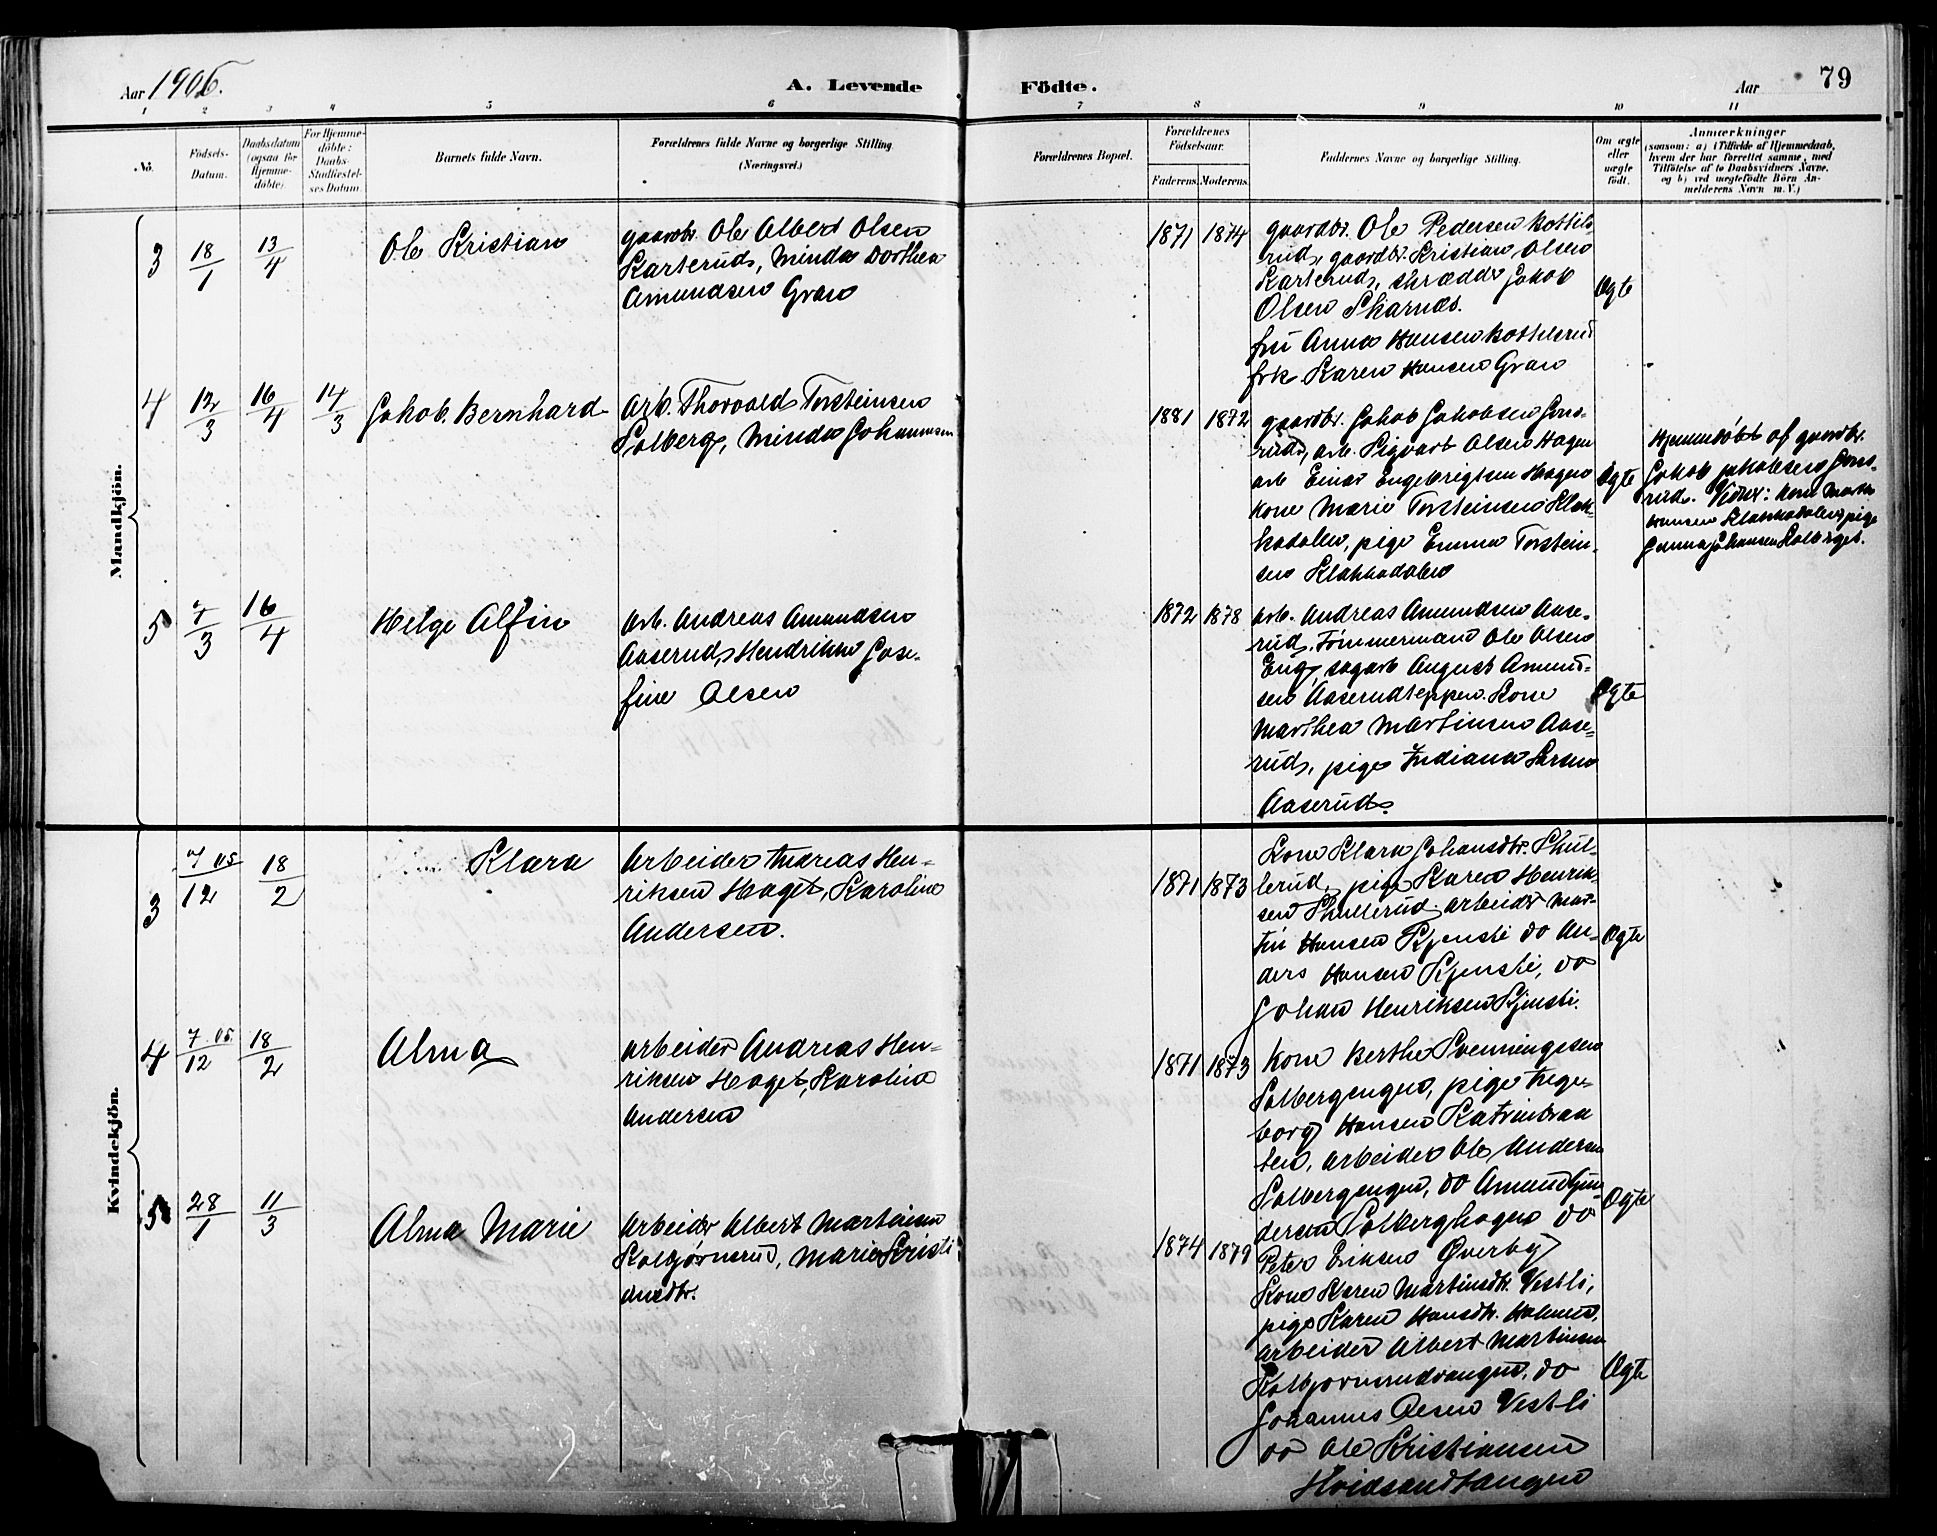 Aar 1906.
A. Levende
Födte.
Aar
79
1 2 3 4 5 6 7 8 9 10 11
No.
Födsels-
Datum.
Daabsdatum
(ogsaa for
Hjemme-
döbte).
For Hjemme-
döbte:
Daabs-
Stadfæstel-
ses Datum.
Barnets fulde Navn.
Forældrenes fulde Navne og borgerlige Stilling
(Næringsvei.)
Forældrenes Bopæl.
Forældrenes
Födselsaar.
Faderens. Moderens.
Faddernes Navne og borgerlige Stilling.
Om ægte
eller
uægte
födt.
Anmærkninger
(saasom: a) i Tilfælde af Hjemmedaab,
hvem der har forrettet samme, med
Tilföielse af to Daabsvidners Navne.
og b) ved uægtefödte Börn An-
melderens Navn m. V.)
Mandkjön.
3
18/1
13/4
Ole Kristian
gaardbr. Ole Albert Olsen
Karterud, Minda Dorthea
Amundsen Gran
1871 1874
gaardbr. Ole Pedersen Kottels-
rud, gaardbr. Kristian Olsen
Karterud, skrædder Jakob
Olsen Skarnes.
fru Anna Hansen Kottelsrud
frk. Karen Hansen Gran
Ægte
4
12/3
16/4
14/3
Jakob Bernhard
Arb. Thorvald Torsteinsen
Solberg, Minda Johannesen
1881 1872
gaardbr. Jakob Jakobsen Jons-
rud, arb. Sigvart Olsen Hagen
arb Einar Engebrigtsen Hagen
kone Marie Torsteinsen Klak-
kadalen, pige Emma Torstein-
sen Klakkadalen
Ægte
Hjemmedöbt af gaardbr.
Jakob Jakobsen Jons-
rud. Vidner: kone Marth
Hansen Klakkadalen, pige
Johansen
5
7/3
16/4
Helge Alfin
Arb. Andreas Amundsen
Aaserud, Hendrikke Jose-
fine Olsen
1872 1878
arb. Andreas Amundsen Aase-
rud, Tømmermand Ole Olsen
Eng, sagarb August Amund-
sen Aaserudteppen. Kone
Marthea Martinsen Aase-
rud, pige Indiana Larsen
Aaserud.
Ægte
Kvindekjön.
3
7 05/12
18/2
Klara
Arbeider Andreas Hen-
riksen Haget, Karoline
Andersen.
1871 1873
Kone Klara Johansdtr. Skul-
lerud, pige Karen Henrik-
sen Skullerud, arbeider Mar-
tin Hansen Kjensli do An-
ders Hansen Kjensli, do
Johan Henriksen Kjensli.
Ægte
4
7 05/12
18/2
Alma
arbeider Andreas Hen-
riksen Haget, Karoline
Andersen
1871 1873
Kone Berthe Svenningsen
Solbergengen, pige Inge-
borg Hansen Katrinbraa
ten, arbeider Ole Andersen
Solbergengen, do Amund Gun
dersen Solberghagen do
Peter Eriksen Øverby
Ægte
5
28/1
11/3
Alma Marie
Arbeider Albert Martinsen
Kolbjørnsrud, Marie Kristi
ansdtr.
1874 1879
Kone Karen Martinsdtr. Vestli,
pige Karen Hansdtr. Holmen,
arbeider Albert Martinsen
Kolbjørnsrudvangen, do
Johannes Olsen Vestli
do Ole Kristiansen
Hvidsandtangen
Ægte